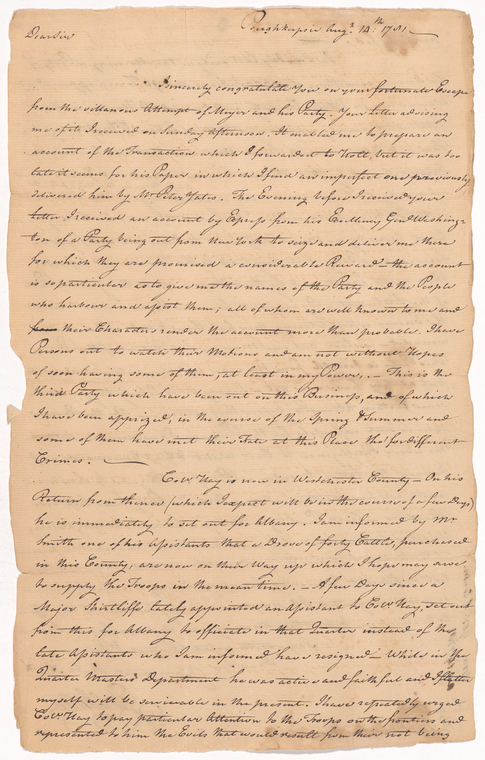 Poughkeepsie Augt. 14.th 1781 —
Dear Sir
I sincerely congratulate You on your fortunate Escape
from the villanous Attempt of Meyer and his Party. Your Letter advising
me of it I received on Sunday Afternoon. It enabled me to prepare an
account of the Transaction which I forwarded to Holt, but it was too
late it seems for his Paper in which I find an imperfect one previously
delivered him by Mr. Peter Yates. The Evening before I received your
Letter, I received an account by Express from his Excellency Genl. Washing-
ton of a Party being out from New York to seize and deliver me there
for which they are promised a considerable Reward — the account
is so particular as to give me the names of the Party and the People
who harbour and assist them; all of whom are well known to me and
from their Characters render the account more than probable. I have
Persons out to watch their Motions and am not without Hopes
of soon having some of them, at least in my Power. — This is the
third Party which have been out on this Business, and of which
I have been apprized, in the course of the Spring & Summer and
some of them have met their Fate at this Place tho' for different
Crimes. —
Colo. Hay is now in Westchester County — On his
Return from thence (which I expect will be in the course of a few Days)
he is immediately to set out for Albany. I am informed by Mr.
Smith one of his Assistants that a Drove of forty Cattle, purchased
in this County, are now on their Way up which I hope may serve
to supply the Troops in the mean time. — A few Days since a
Major Shirtliff lately appointed an Assistant to Colo. Hay, set out
from this for Albany to officiate in that Quarter instead of the
late Assistants who I am informed have resigned — While in the
Quarter Masters Department he was active and faithful and I flatter
myself will be serviceable in the present. I have repeatedly urged
Colo. Hay to pay particular Attention to the Troops on the frontiers and
represented to him the Evils that would result from their not being